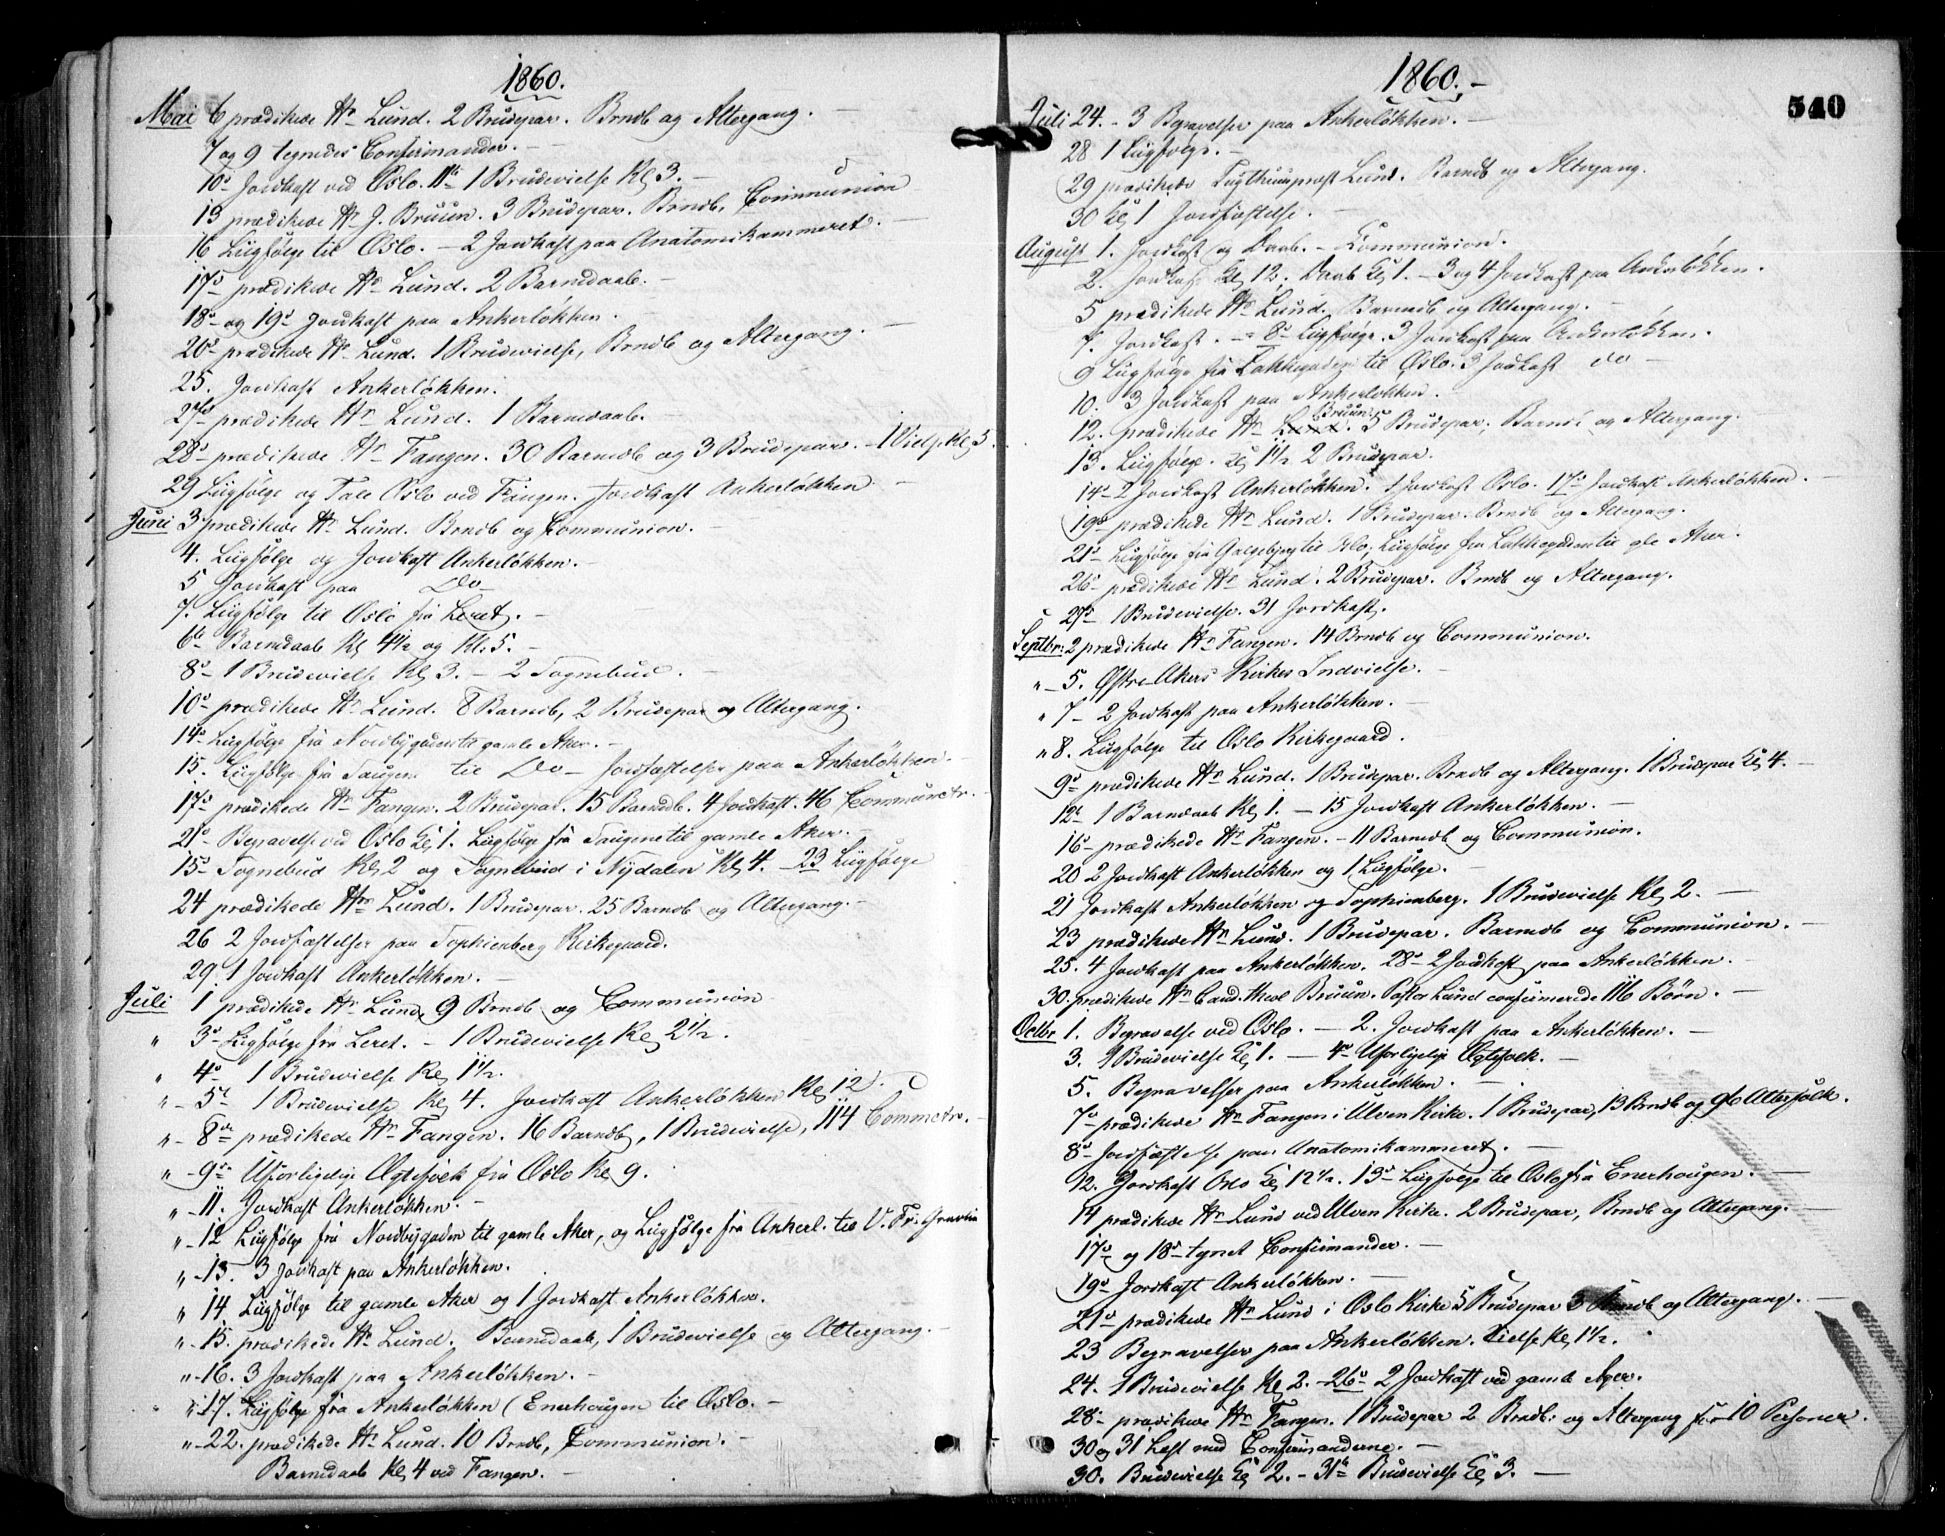 1860.
Mai 6 prædikede Hr Lund. 2 Brudepar. Brndb og Altergang. —
7 og 9 tegnedes Confirmander. —
10de Jordkast ved Oslo. 11te 1 Brudevielse Kl 3. —
13 prædikede Hr J. Bruun. 3 Brudepar. Brndb. Communion
16 Liigfølge til Oslo. — 2 Jordkast paa Anatomikammeret.
17de prædikede Hr Lund. 2 Barnedaab. —
18de og 19de Jordkast paa Ankerløkken. —
20de prædikede Hr Lund. 1 Brudevielse, Brndb og Altergang. —
25. Jordkast Ankerløkken.
27de prædikede Hr Lund. 1 Barnedaab.
28de prædikede Hr Fangen. 30 Barnedb og 3 Brudepar. — 1 Vielse Kl 5.
29 Liigfølge og Tale Oslo ved Fangen. Jordkast Ankerløkken —
Juni 3 prædikede Hr Lund. Brndb og Communion. —
4. Liigfølge og Jordkast Ankerløkken. —
5 Jordkast paa Do —
7. Liigfølge til Oslo fra Leret. —
6te Barnedaab Kl 4½ og Kl. 5. —
8de 1 Brudevielse Kl 3. — 2 Sognebud. —
10de prædikede Hr Lund. 8 Barneb, 2 Brudepar og Altergang.
14de Liigfølge fra Nordbygaden til gamle Aker. —
15. Liigfølge fra Saugene til Do — Jordfæstelser paa Ankerløkken. —
17de prædikede Hr Fangen. 2 Brudepar. 15 Barndb. 4 Jordkast. 46 Communctr. —
21de Begravelse ved Oslo Kl 1. Liigfølge fra Saugene til gamle Aker. —
15de Sognebud Kl 2 og Sognebud i Nydalen Kl 4. — 23 Liigfølge
24 prædikede Hr Lund. 1 Brudepar. 25 Barndb og Altergang. —
26 2 Jordfæstelser paa Sophienberg Kirkegaard.
29. 1 Jordkast Ankerløkken. —
Juli 1 prædikede Hr Lund, 9 Brndb og Communion
" 3de Liigfølge fra Leret. — 1 Brudevielse Kl 2½.
" 4de 1 Brudevielse Kl 1½.
" - 5te 1 Brudevielse Kl 4. Jordkast Ankerløkken Kl 12. —
" - 8de prædikede Hr Fangen. 16 Barndb, 1 Brudevielse, 114 Commctr. —
" - 9de Uforligelige Ægtefolk fra Oslo Kl 9.
" - 11. Jordkast Ankerløkken. —
" - 12 Liigfølge fra Nordbygaden til gamle Aker, og Liigfølge fra Ankerl. til V. Fr.
" - 13. 3 Jordkast paa Ankerløkken.
" 14 Liigfølge til gamle Aker og 1 Jordkast Ankerløkken.
" - 15. prædikede Hr Lund. Barnedaab, 1 Brudevielse og Altergang. —
" - 16. 3 Jordkast paa Ankerløkken. —
" - 17. Liigfølge fra Ankerløkken (Enerhougen til Oslo. —
" - 22. prædikede Hr Lund. 10 Brndb, Communion. —
Barnedaab Kl 4 ved Fangen. —
1860. —
540
Juli 24. - 3 Begravelser paa Ankerløkken. —
28 1 Liigfølge. —
29 prædikede Tugthuuspræst Lund. Barndb og Altergang.
30 Kl 1 Jordfæstelse. —
August 1. Jordkast og Daab. — Communion.
2. Jordkast Kl 12, Daab Kl 1. — 3 og 4 Jordkast paa Ankerløkken.
5 prædikede Hr Lund. Barnedb og Altergang. —
7. Jordkast. — 8de Liigfølge. 3 Jordkast paa Ankerløkken.
9 Liigfølge fra Lakkegaden til Oslo. 3 Jordkast do —
10. 3 Jordkast paa Ankerløkken.
12. prædikede Hr Lund Bruun. 5 Brudepar, Barneb og Altergang.
13. Liigfølge. Kl 1½ 2 Brudepar.
14de 2 Jordkast Ankerløkken. 1 Jordkast Oslo. 17de Jordkast Ankerløkken. —
19de prædikede Hr Lund. 1 Brudepar. Brndb og Altergang.
21de Liigfølge fra Galgeberg til Oslo, Liigfølge fra Lakkegaden til gle Aker.
26de prædikede Hr Lund. 2 Brudepar. Brndb og Altergang.
27de 1 Brudevielse. 31 Jordkast.
Septbr: 2 prædikede Hr Fangen. 14 Brndb og Communion.
" - 5. Østre Akers Kirkes Indvielse. —
" 7 - 2 Jordkast paa Ankerløkken. —
" 8. Liigfølge til Oslo Kirkegaard.
9de prædikede Hr Lund. 1 Brudepar. Brndb og Altergang. 1 Brudepar Kl 4. —
12te 1 Barnedaab Kl 1. — 15 Jordkast Ankerløkken. —
16de prædikede Hr Fangen. — 11 Barnedb og Communion.
20 2 Jordkast Ankerløkken og 1 Liigfølge. —
21 Jordkast Ankerløkken og Sophienberg. 1 Brudevielse Kl 2. —
23 prædikede Hr Lund. 1 Brudepar. Barnedb og Communion. —
25. 4 Jordkast paa Ankerløkken. 28de 2 Jordkast paa Ankerløkken. —
30. prædikede Hr Cand. theol Bruun. Pastor Lund confirmerede 116 Børn. —
Octbr 1. Begravelse ved Oslo. — 2. Jordkast paa Ankerløkken. —
3. 1 Brudevielse Kl 1. — 4de Uforligelige Ægtefolk. —
5. Begravelser paa Ankerløkken. —
7de prædikede Hr Fangen i Ulven Kirke. 1 Brudepar, 13 Brndb og 96 Altersfolk.
8de Jordfæstelse paa Anatomikammeret. —
12. Jordkast Oslo Kl 12½. 13de Liigfølge til Oslo fra Enerhougen. —
14 prædikede Hr Lund ved Ulven Kirke. 2 Brudepar, Brndb og Altergang. —
17de og 18de tegnet Confirmander. —
19de Jordkast Ankerløkken. —
21de prædikede Hr Lund i Oslo Kirke 5 Brudepar Brndb og Altergang. —
23 Begravelser paa Ankerløkken. Vielse Kl 1½.
24. 1 Brudevielse Kl 2. — 26de 2 Jordkast ved gamle Ager.
28de prædikede Hr Fangen. 1 Brudepar 2 Brndb: og Altergang for 10 Personer.
30 og 31 Læst med Confirmanderne. —
30. Brudevielse Kl 2. — 31te Brudevielse Kl 3. —